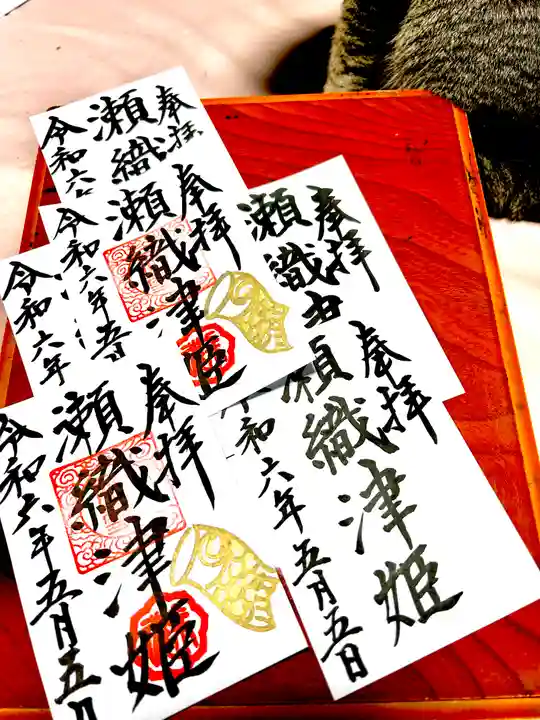 奉拝
瀬織
令和六
奉拝
瀬織津姫
令和六年五
令和六年
奉拝
瀬織
奉拝
瀬織津姫
令和六年五月五日
奉拝
瀬織津姫
令和六年五月五日